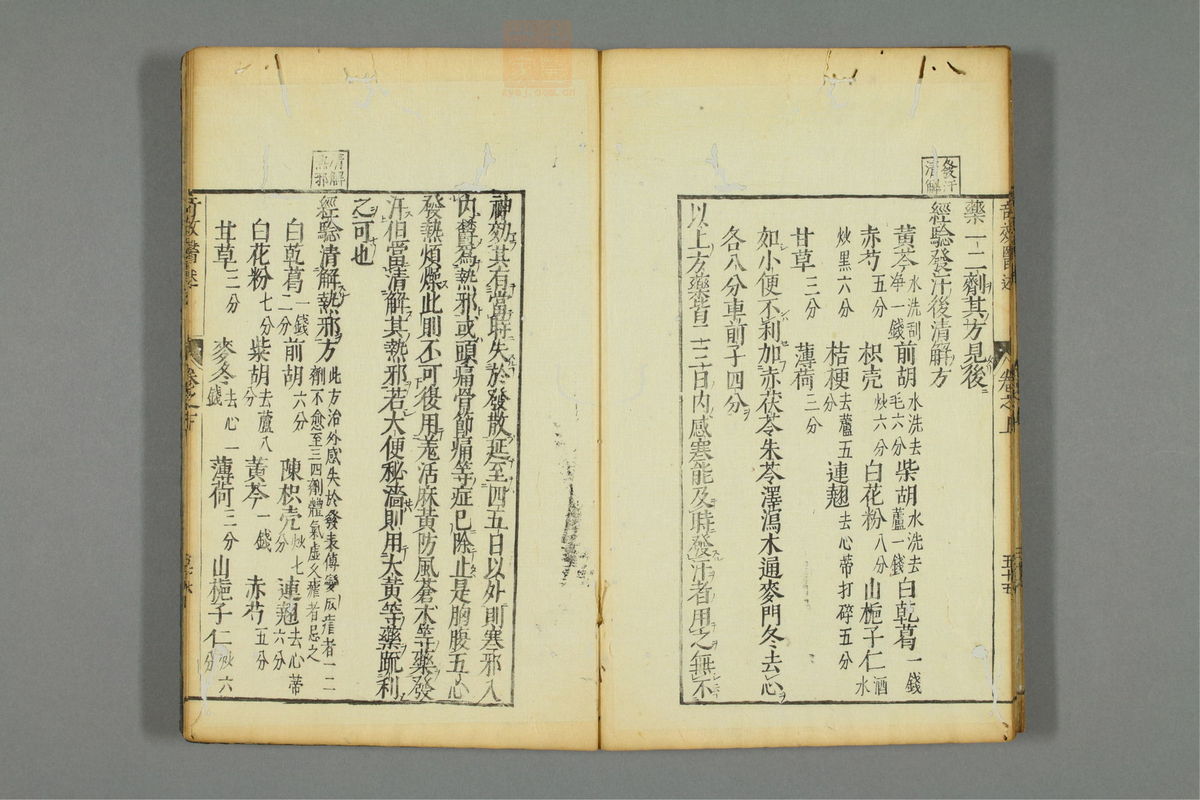 發汗
清解
藥一二劑其方見後
經驗發汗後清解方
黃芩水洗刮淨一錢 前胡水洗去毛六分 柴胡水洗去蘆一錢 白乾葛一錢
赤芍五分 枳壳炒六分 白花粉八分 山梔子仁酒水
炒黑六分 桔梗去蘆五分 連翹去心蒂打碎五分
甘草三分 薄荷三分
如小便不利加赤茯苓朱苓澤瀉木通麥門冬去心
各八分車前子四分
以上方藥皆二三日內感寒能及時發汗者用之無不
神効其有當時失於發散延至四五日以外則寒邪入
內欝為熱邪或頭痛骨節痛等症已除止是胸腹五心
發熱煩燥此則不可復用羗活麻黃防風蒼朮等藥發
汗但當清解其熱邪若大便秘濇則用大黃等藥疏利
之可也
清解
熱邪
經驗清解熱邪方此方治外感失於發表傳變反瘧者一二劑不愈至三四劑體氣虛久瘧者忌之
白乾葛一錢二分 前胡六分 陳枳壳炒七分 連翹去心蒂六分
白花粉七分 柴胡去蘆八分 黃芩一錢 赤芍五分
甘草三分 麥冬去心一錢 薄荷三分 山梔子仁炒六分